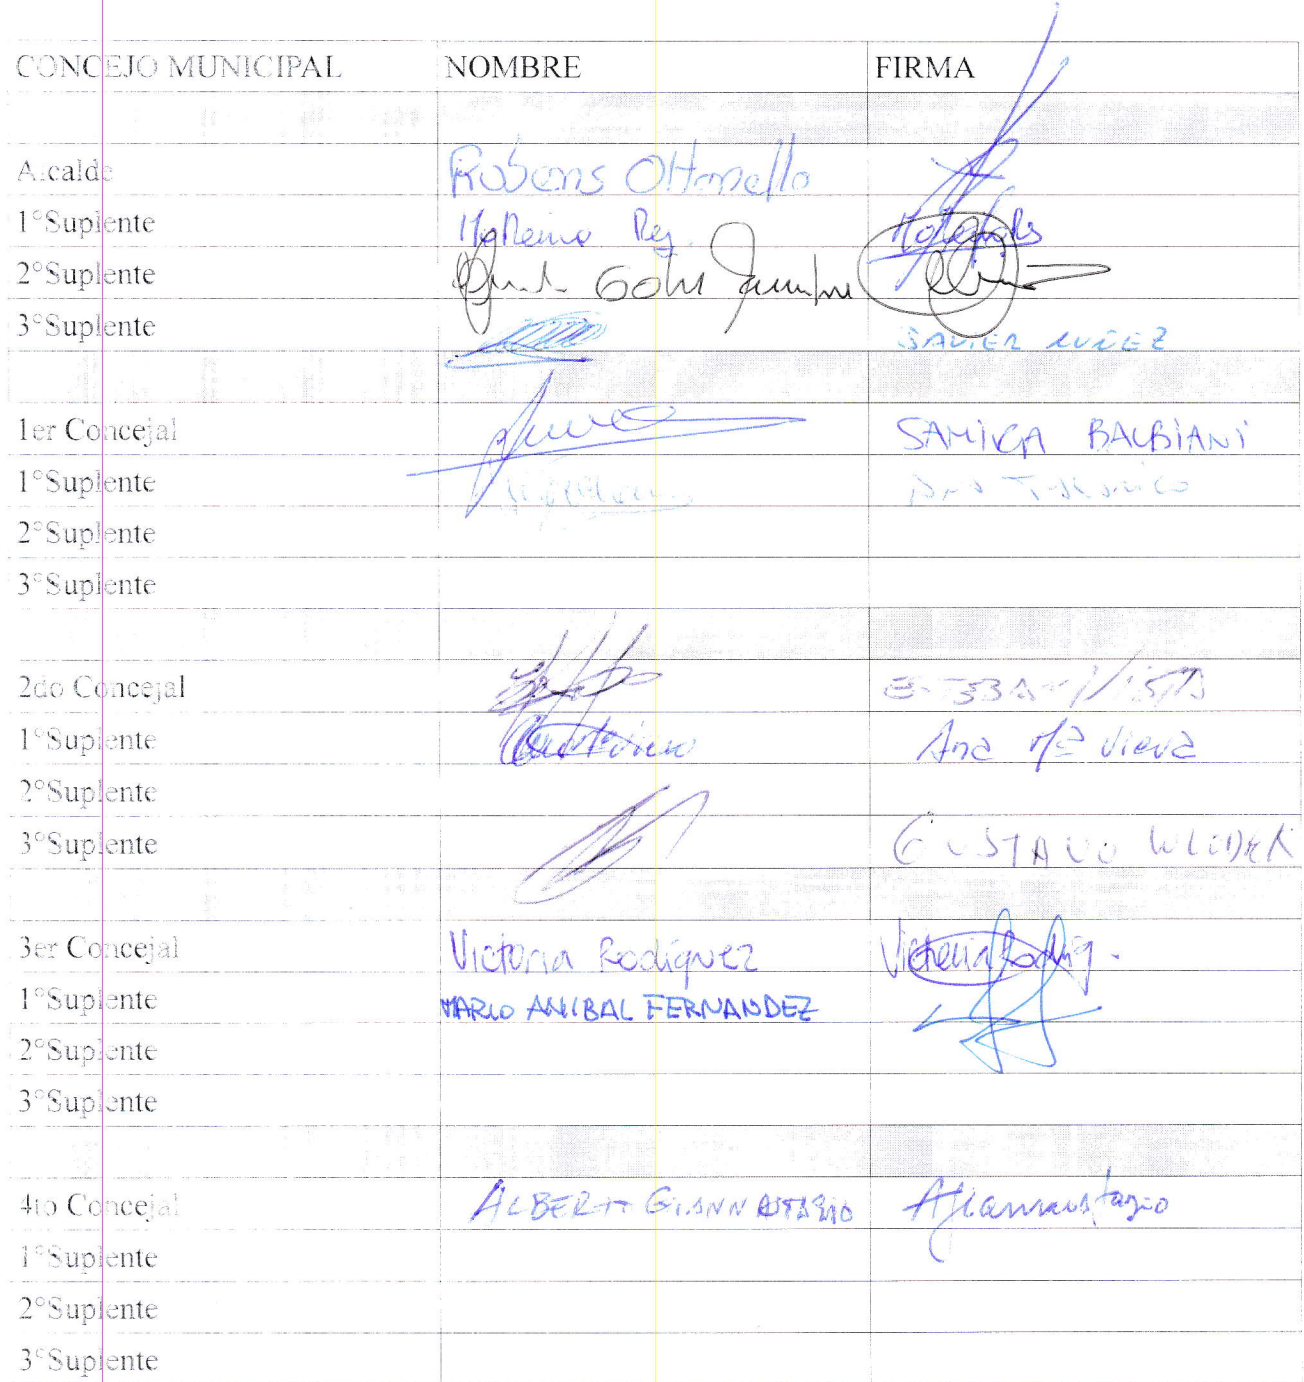 CONCEJO MUNICIPAL NOMBRE FIRMA
Alcalde Rubens Ottonello
1°Suplente
2°Suplente
3°Suplente JAVIER NUÑEZ
1er Concejal SAMIRA BALBIANI
1°Suplente
2°Suplente
3°Suplente
2do Concejal
1°Suplente Ana Mª Viera
2°Suplente
3°Suplente GUSTAVO
3er Concejal Victoria Rodiguez Victoria Rodrig.
1°Suplente MARIO ANIBAL FERNANDEZ
2°Suplente
3°Suplente
4to Concejal ALBERTO GIANNASTASIO
1°Suplente
2°Suplente
3°Suplente